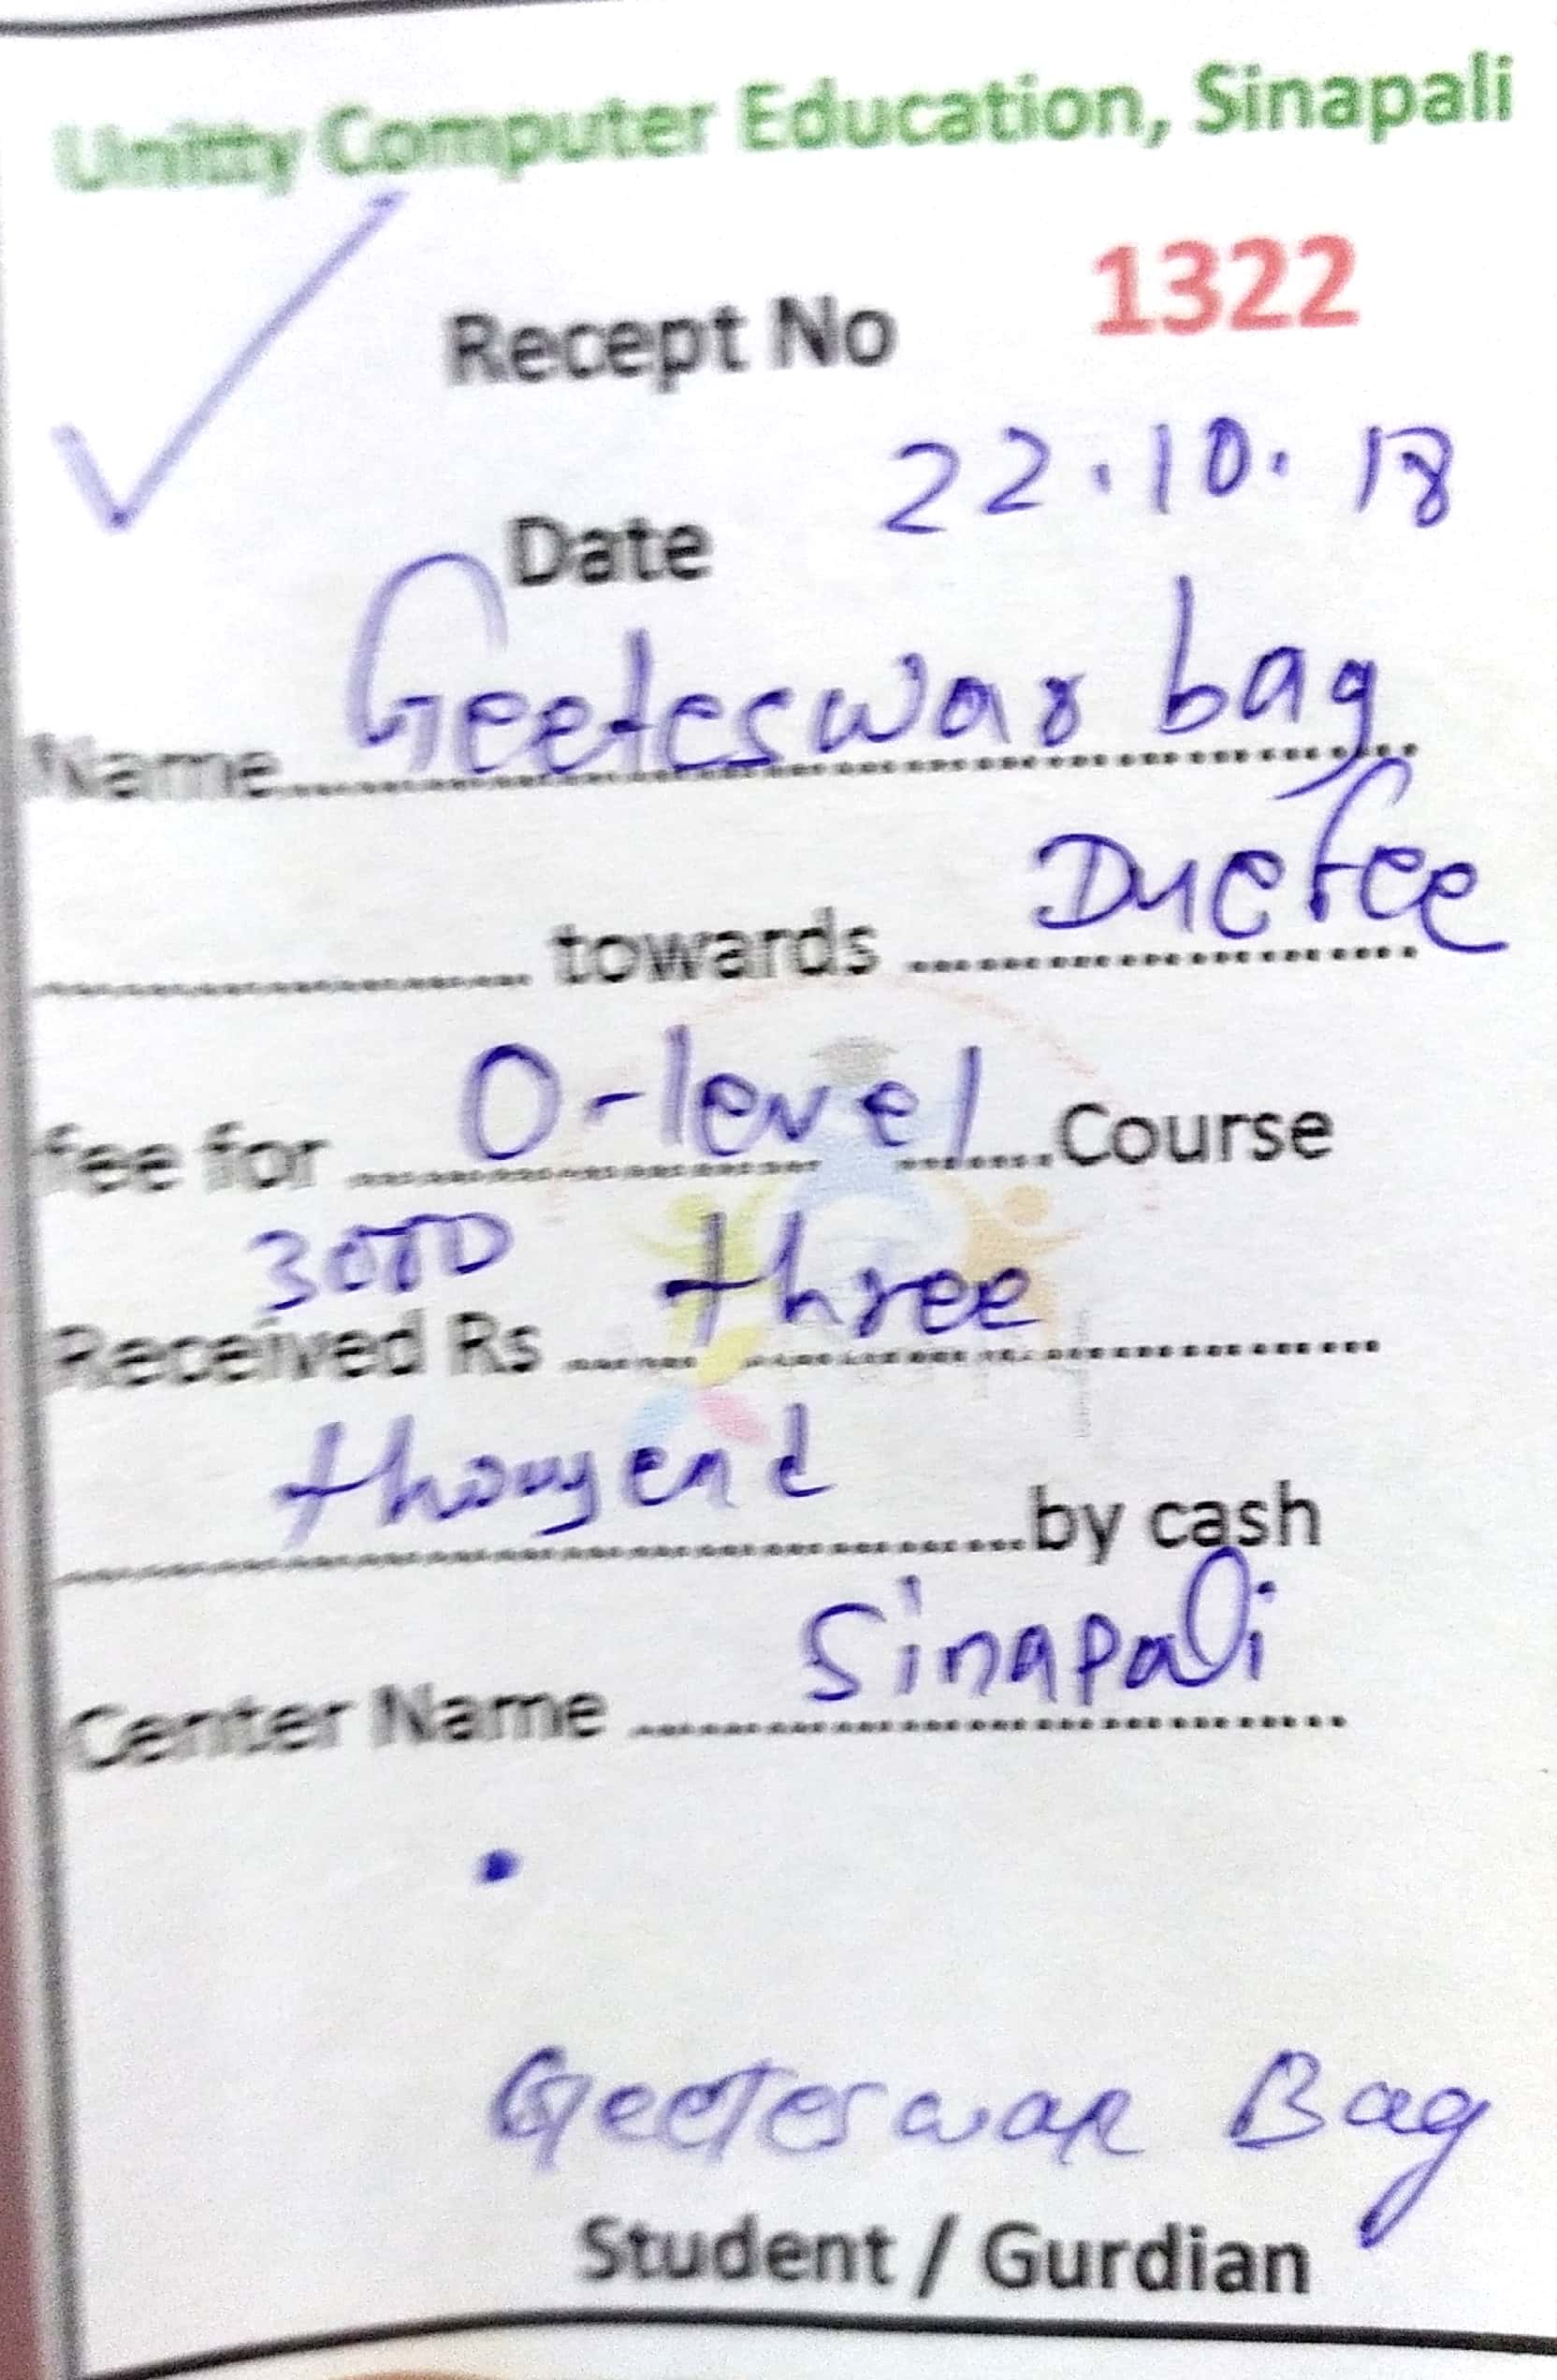 Unitty Computer Education, Sinapali
Recept No 1322
Date 22.10.18
Name Geeteswar bag
towards Due fee
fee for O-level Course
3000
Received Rs three
thousend by cash
Center Name Sinapali
Geeteswar Bag
Student / Gurdian